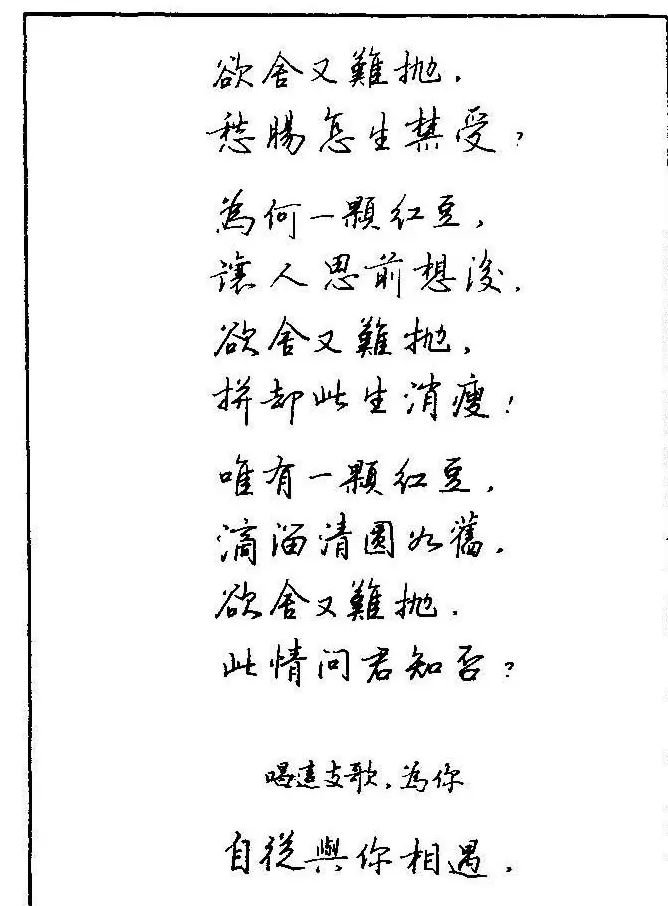 欲舍又難拋，
愁腸怎生禁受？
為何一顆紅豆，
讓人思前想後，
欲舍又難拋，
拼却此生消瘦！
唯有一顆紅豆，
滴溜清圓如舊，
欲舍又難拋，
此情問君知否？
唱這支歌，為你
自從與你相遇，